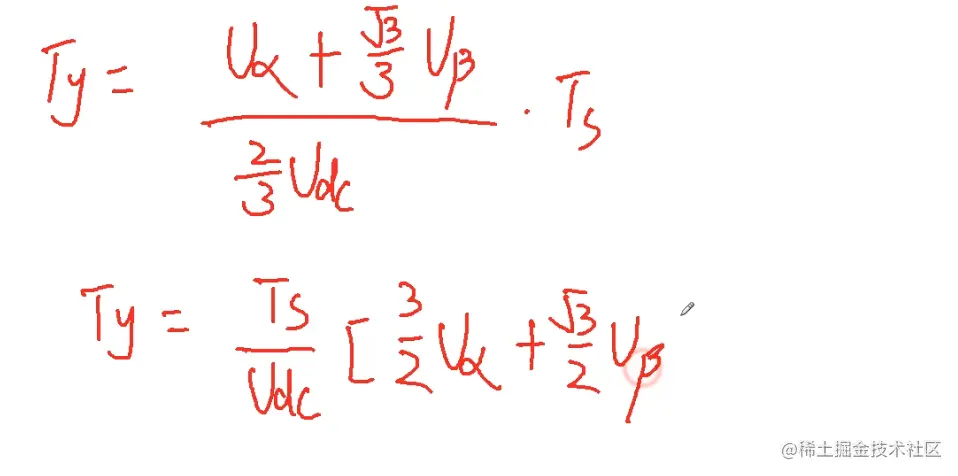 Ty = (Uα + (√3/3) Uβ) / ((2/3) Udc) · Ts
Ty = Ts/Udc [ (3/2) Uα + (√3/2) Uβ
@稀土掘金技术社区